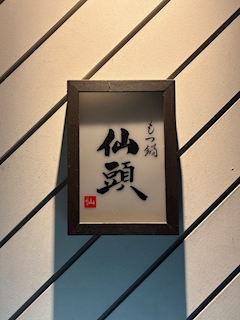 もつ鍋
仙頭
仙